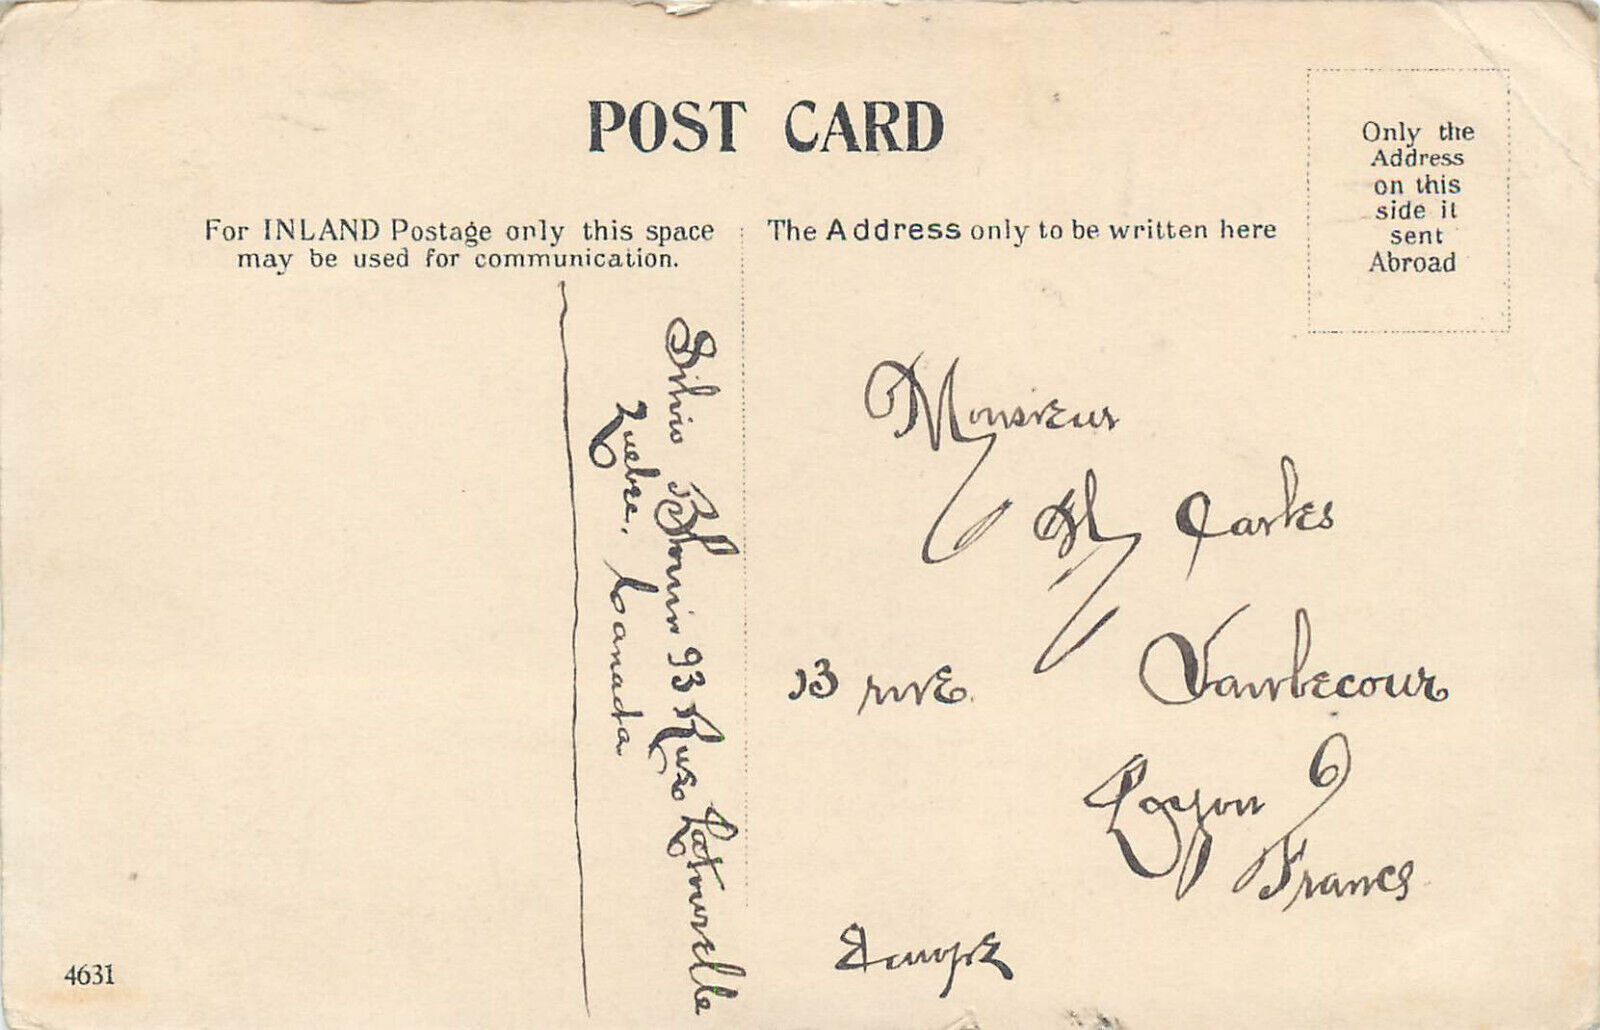 POST CARD
Only the
Address
on this
side it
sent
Abroad
For INLAND Postage only this space
may be used for communication.
The Address only to be written here
Silvio Blouin 93 Rue Latourelle
Quebec. Canada
Monsieur
H Carles
13 rue Vaubecour
Lyon
France
Europe
4631